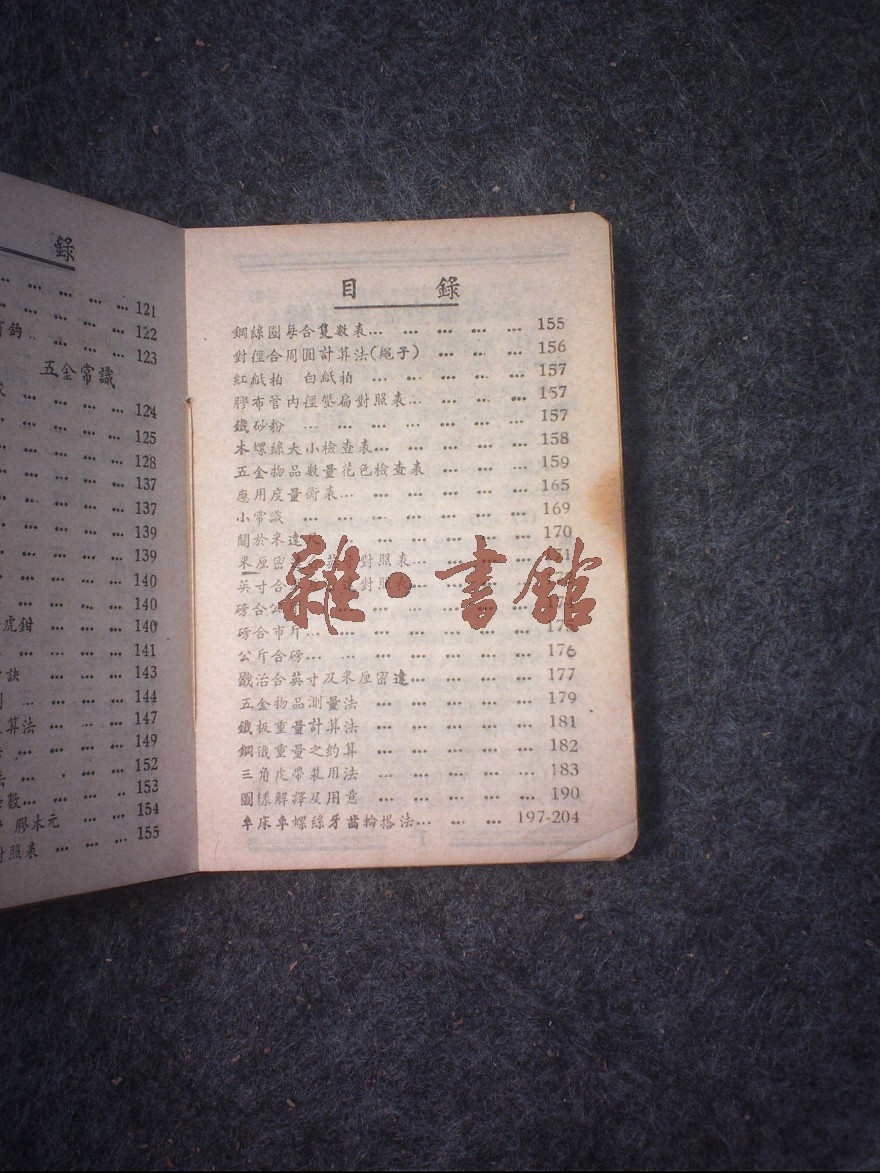 錄
… … … … … 121
… … … … 122
鈎… … … … 123
五金常識
… … … 124
… … … 125
… … … 128
… … … 137
… … … 137
… … … 139
… … … 139
… … … 140
… … … 140
虎鉗 … … … 140
… … … 141
訣 … … … 143
… … … 144
算法 … … … 147
… … … 149
法 … … … 152
數… … … … 153
膠木元 … … 154
對照表 … … … 155
目 錄
鋼絲圈每合隻數表… … … … … 155
對徑合周圓計算法(繩子) … … … 156
紅紙柏 白紙柏 … … … … … 157
膠布管內徑壓扁對照表… … … … 157
鐵砂粉 … … … … … … … 157
木螺絲大小檢查表… … … … … 158
五金物品數量花色檢查表 … … … 159
應用度量衡表… … … … … … 165
小常識 … … … … … … … 169
關於米達 … … … … … 170
米厘密 對照表… … … … 171
英寸合 對照表… … … …
磅合公 … … … … …
磅合市斤… … … … … … …
公斤合磅… … … … … … … 176
戳治合英寸及米厘密達… … … … 177
五金物品測量法 … … … … … 179
鐵板重量計算法 … … … … … 181
鋼鐵重量之約算 … … … … … 182
三角皮帶裝用法 … … … … … 183
圖樣解譯及用意 … … … … … 190
車床車螺絲牙齒輪搭法… … … 197-204
雜·書館